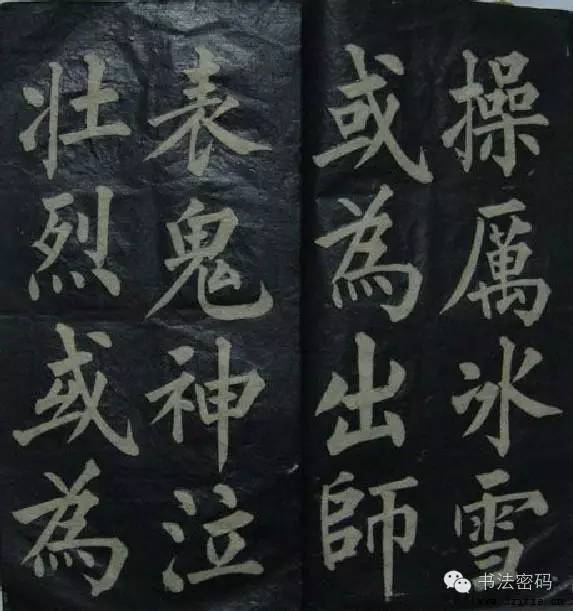 操厲冰雪
或為出師
表鬼神泣
壮烈或為
书法密码